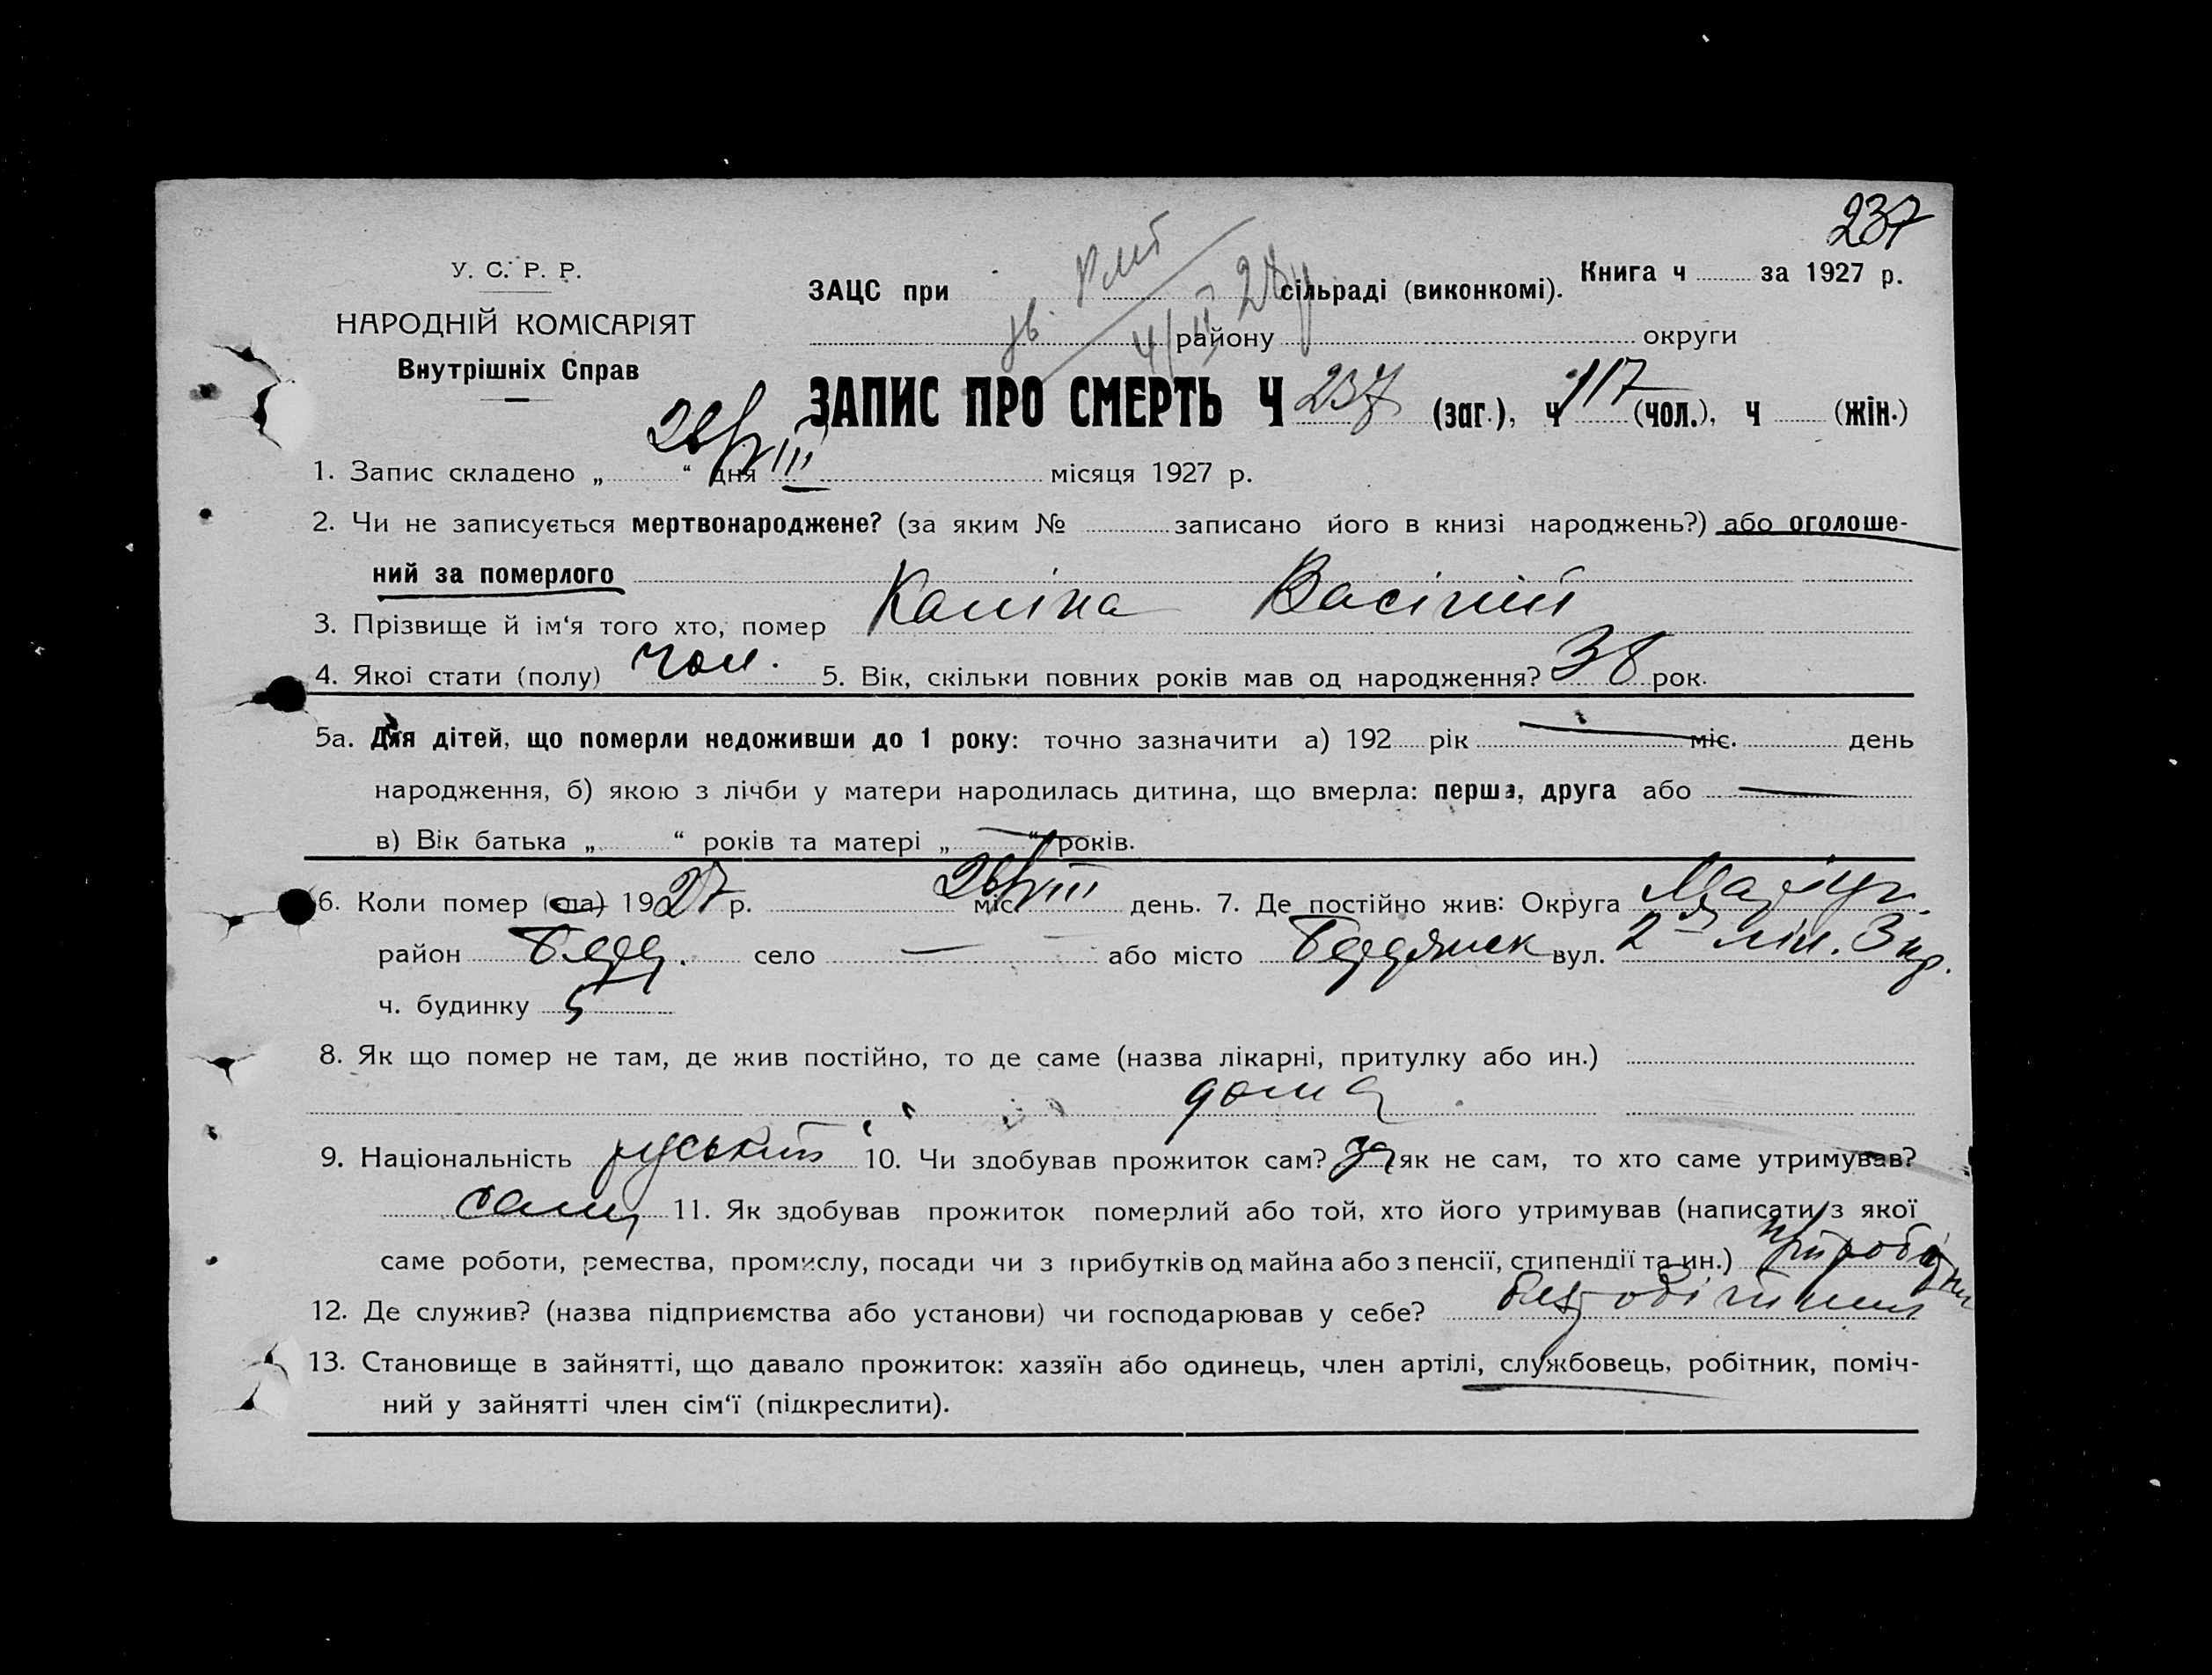 237
У. С. Р. Р.
НАРОДНІЙ КОМІСАРІЯТ
Внутрішніх Справ
ЗАЦС при сільраді (виконкомі). Книга ч за 1927 р.
району округи
ЗАПИС ПРО СМЕРТЬ Ч 237 (заг.), ч 117 (чол.), ч (жін.)
1. Запис складено „ “ дня VIII місяця 1927 р.
2. Чи не записується мертвонароджене? (за яким № записано його в книзі народжень?) або оголоше-
ний за померлого
3. Прізвище й ім‘я того хто, помер Каліна Васілій
4. Якої стати (полу) чол. 5. Вік, скільки повних років мав од народження? 38 рок.
5а. Для дітей, що померли недоживши до 1 року: точно зазначити а) 192 рік міс. день
народження, б) якою з лічби у матери народилась дитина, що вмерла: перша, друга або —
в) Вік батька „ “ років та матері „ — “ років.
6. Коли помер (ла) 1927 р. міс. VIII день. 7. Де постійно жив: Округа
район Берд. село — або місто Бердянськ вул. 2 лін. 3 пр.
ч. будинку 5
8. Як що помер не там, де жив постійно, то де саме (назва лікарні, притулку або ин.)
дома
9. Національність руський 10. Чи здобував прожиток сам? як не сам, то хто саме утримував?
сам 11. Як здобував прожиток померлий або той, хто його утримував (написати з якої
саме роботи, ремества, промислу, посади чи з прибутків од майна або з пенсії, стипендії та ин.)
12. Де служив? (назва підприємства або установи) чи господарював у себе?
13. Становище в зайнятті, що давало прожиток: хазяїн або одинець, член артілі, службовець, робітник, поміч-
ний у зайнятті член сім‘ї (підкреслити).